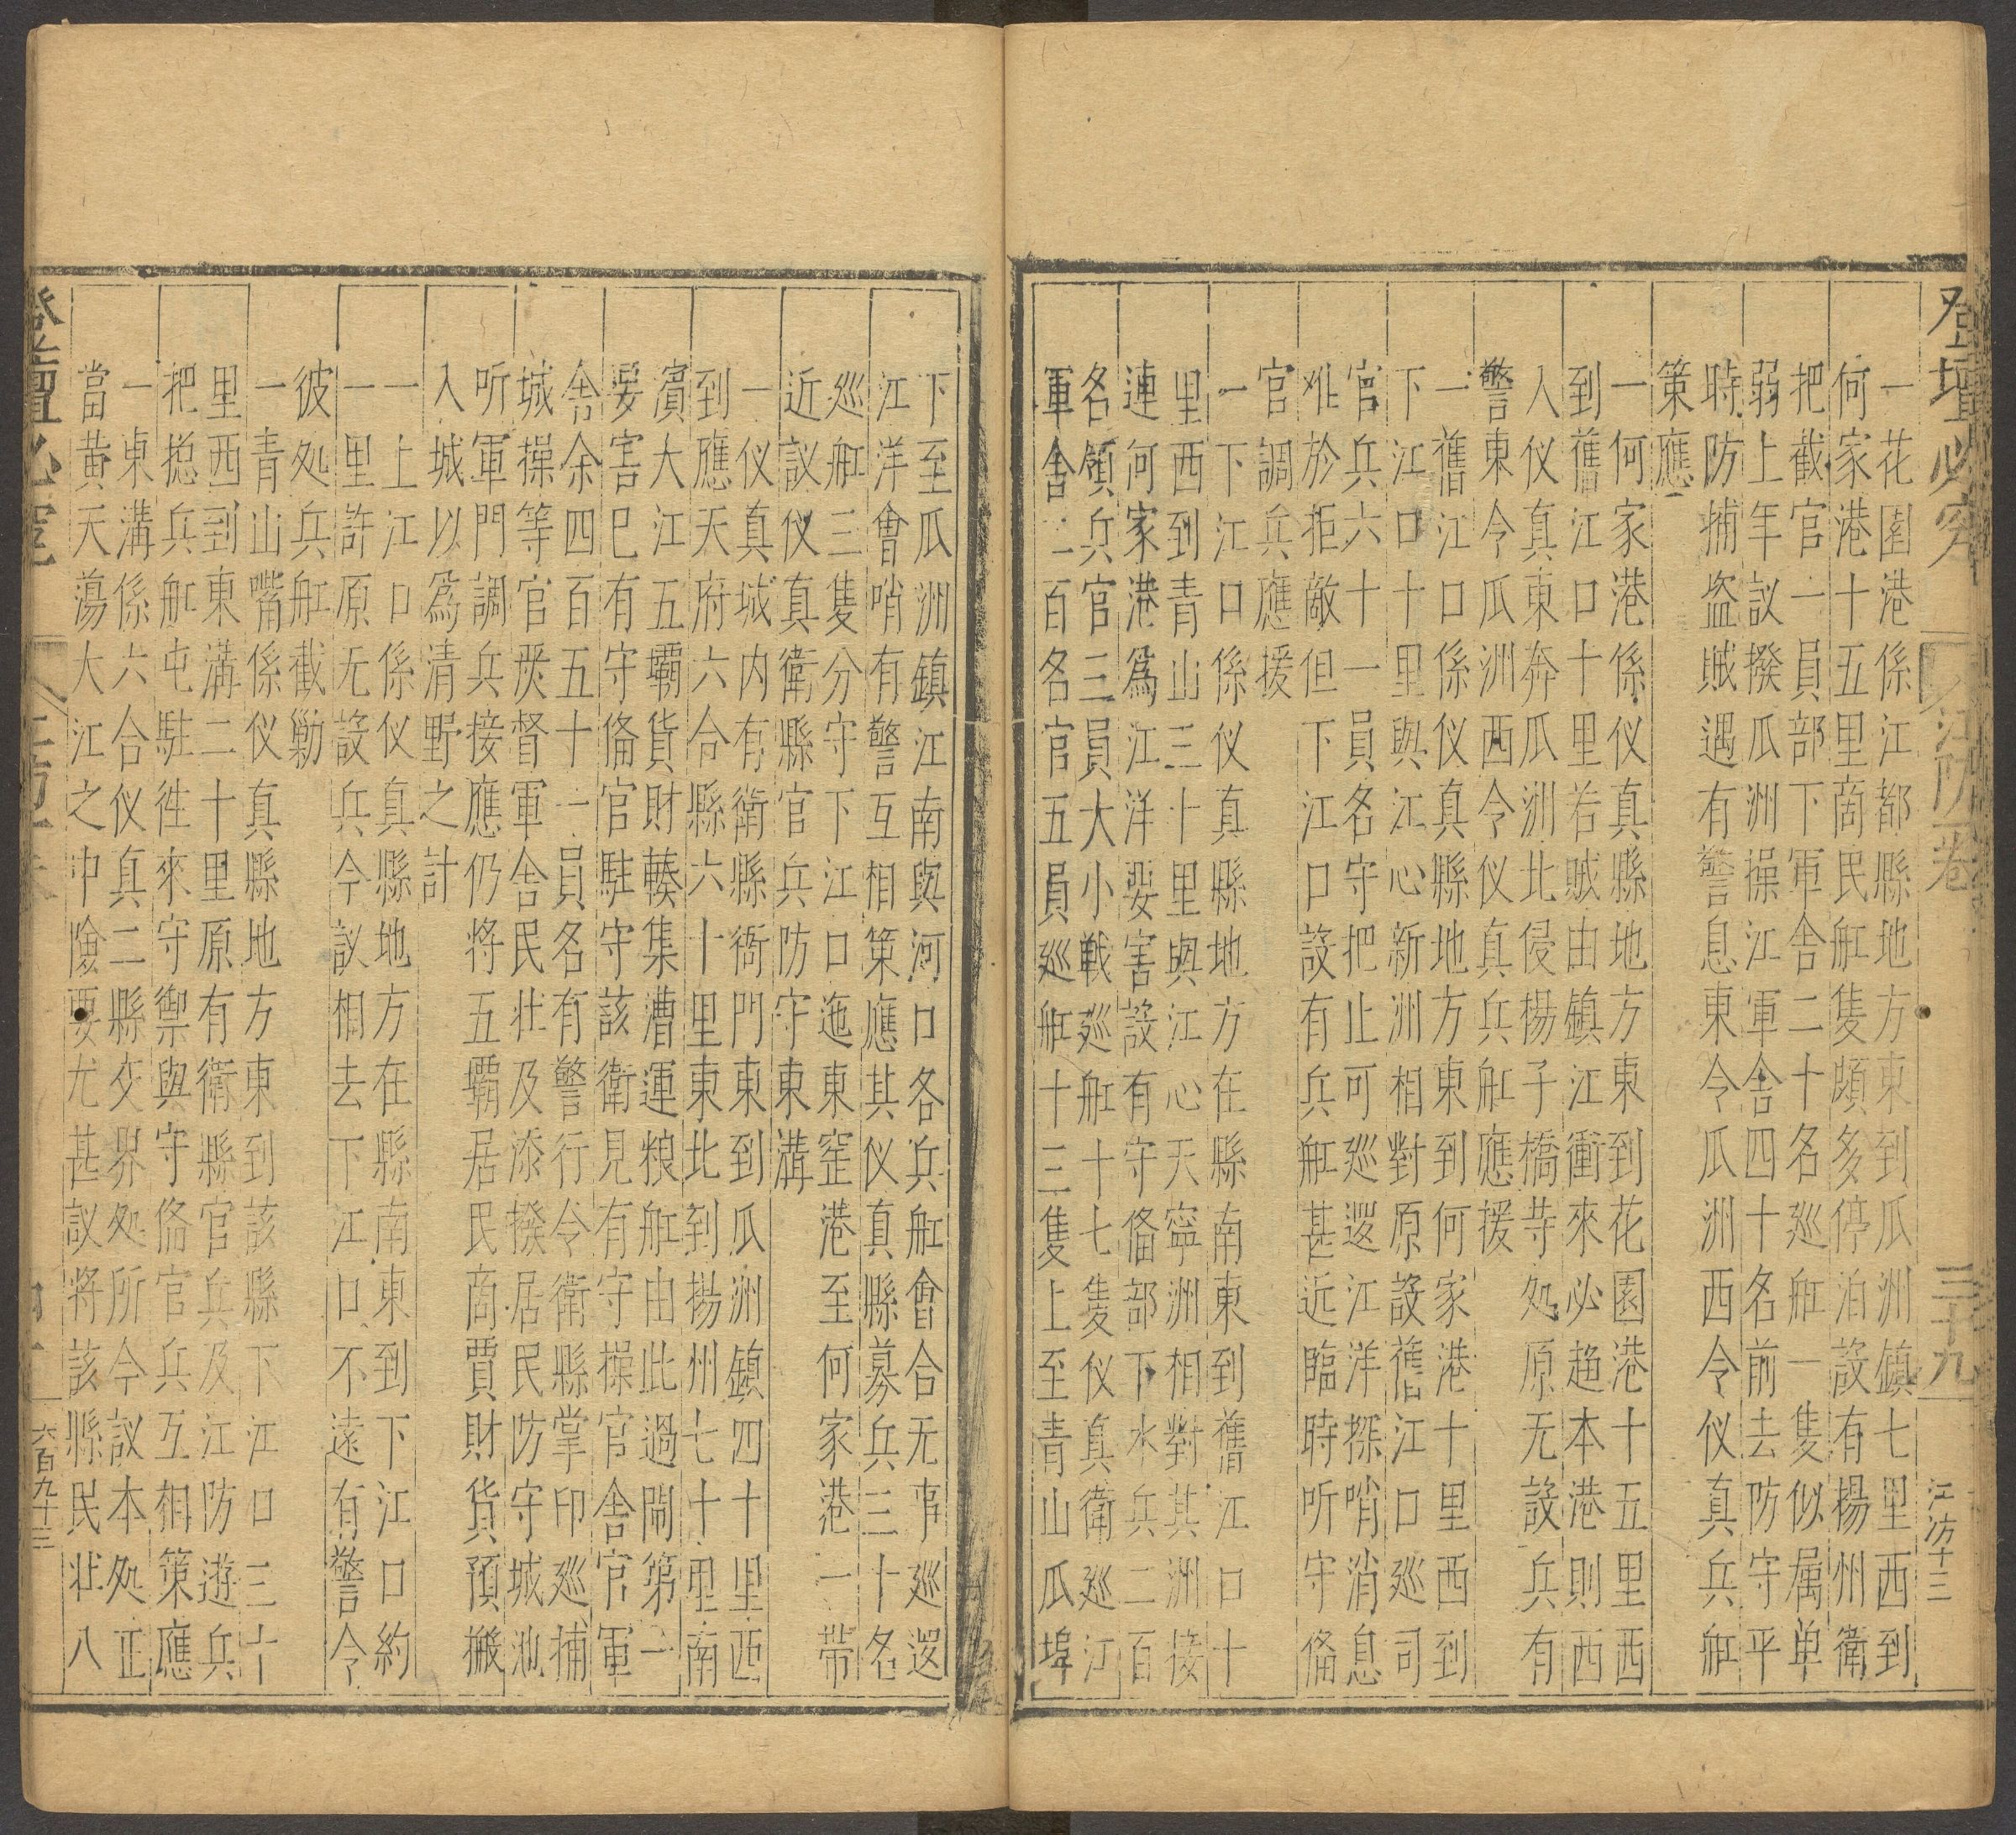 登壇必究
江防卷
三十九
江防十三
一花園港係江都縣地方東到瓜洲鎮七里西到
何家港十五里商民舡隻頗多停泊設有揚州衛
把截官一員部下軍舍二十名巡舡一隻似属单
弱上年議撥瓜洲操江軍舍四十名前去防守平
時防捕盗賊遇有警息東令瓜洲西令仪真兵舡
策應
一何家港係仪真縣地方東到花園港十五里西
到舊江口十里若賊由鎮江衝來必趋本港則西
入仪真東奔瓜洲北侵揚子橋等处原无設兵有
警東令瓜洲西令仪真兵舡應援
一舊江口係仪真縣地方東到何家港十里西到
下江口十里與江心新洲相對原設舊江口巡司
官兵六十一員名守把止可巡邏江洋探哨消息
难於拒敵但下江口設有兵舡甚近臨時听守俻
官調兵應援
一下江口係仪真縣地方在縣南東到舊江口十
里西到青山三十里與江心天寧洲相對其洲接
連河家港為江洋要害設有守俻部下水兵二百
名領兵官三員大小戰巡舡十七隻仪真衛巡江
軍舍一百名官五員巡舡十三隻上至青山瓜埠
下至瓜洲鎮江南與河口各兵舡會合无事巡邏
江洋會哨有警互相策應其仪真縣募兵三十名
巡舡三隻分守下江口迤東窑港至何家港一帯
近議仪真衛縣官兵防守東溝
一仪真城内有衛縣衙門東到瓜洲鎮四十里西
到應天府六合縣六十里東北到揚州七十里南
濱大江五霸貨財輳集漕運粮舡由此過閘第一
要害巳有守俻官駐守該衛見有守操官舍官軍
舍余四百五十一員名有警行令衛縣掌印巡捕
城操等官厌督軍舍民壮及添撥居民防守城池
听軍門調兵接應仍将五霸居民商賈財貨預搬
入城以為清野之計
一上江口係仪真縣地方在縣南東到下江口約
一里許原无設兵今議相去下江口不遠有警令
彼处兵舡截勦
一青山嘴係仪真縣地方東到該縣下江口三十
里西到東溝二十里原有衛縣官兵及江防遊兵
把捴兵舡屯駐徃來守禦與守俻官兵互相策應
一東溝係六合仪真二縣交界处所今議本处正
當黄天蕩大江之中險要尤甚議将該縣民壮八
六百九十三